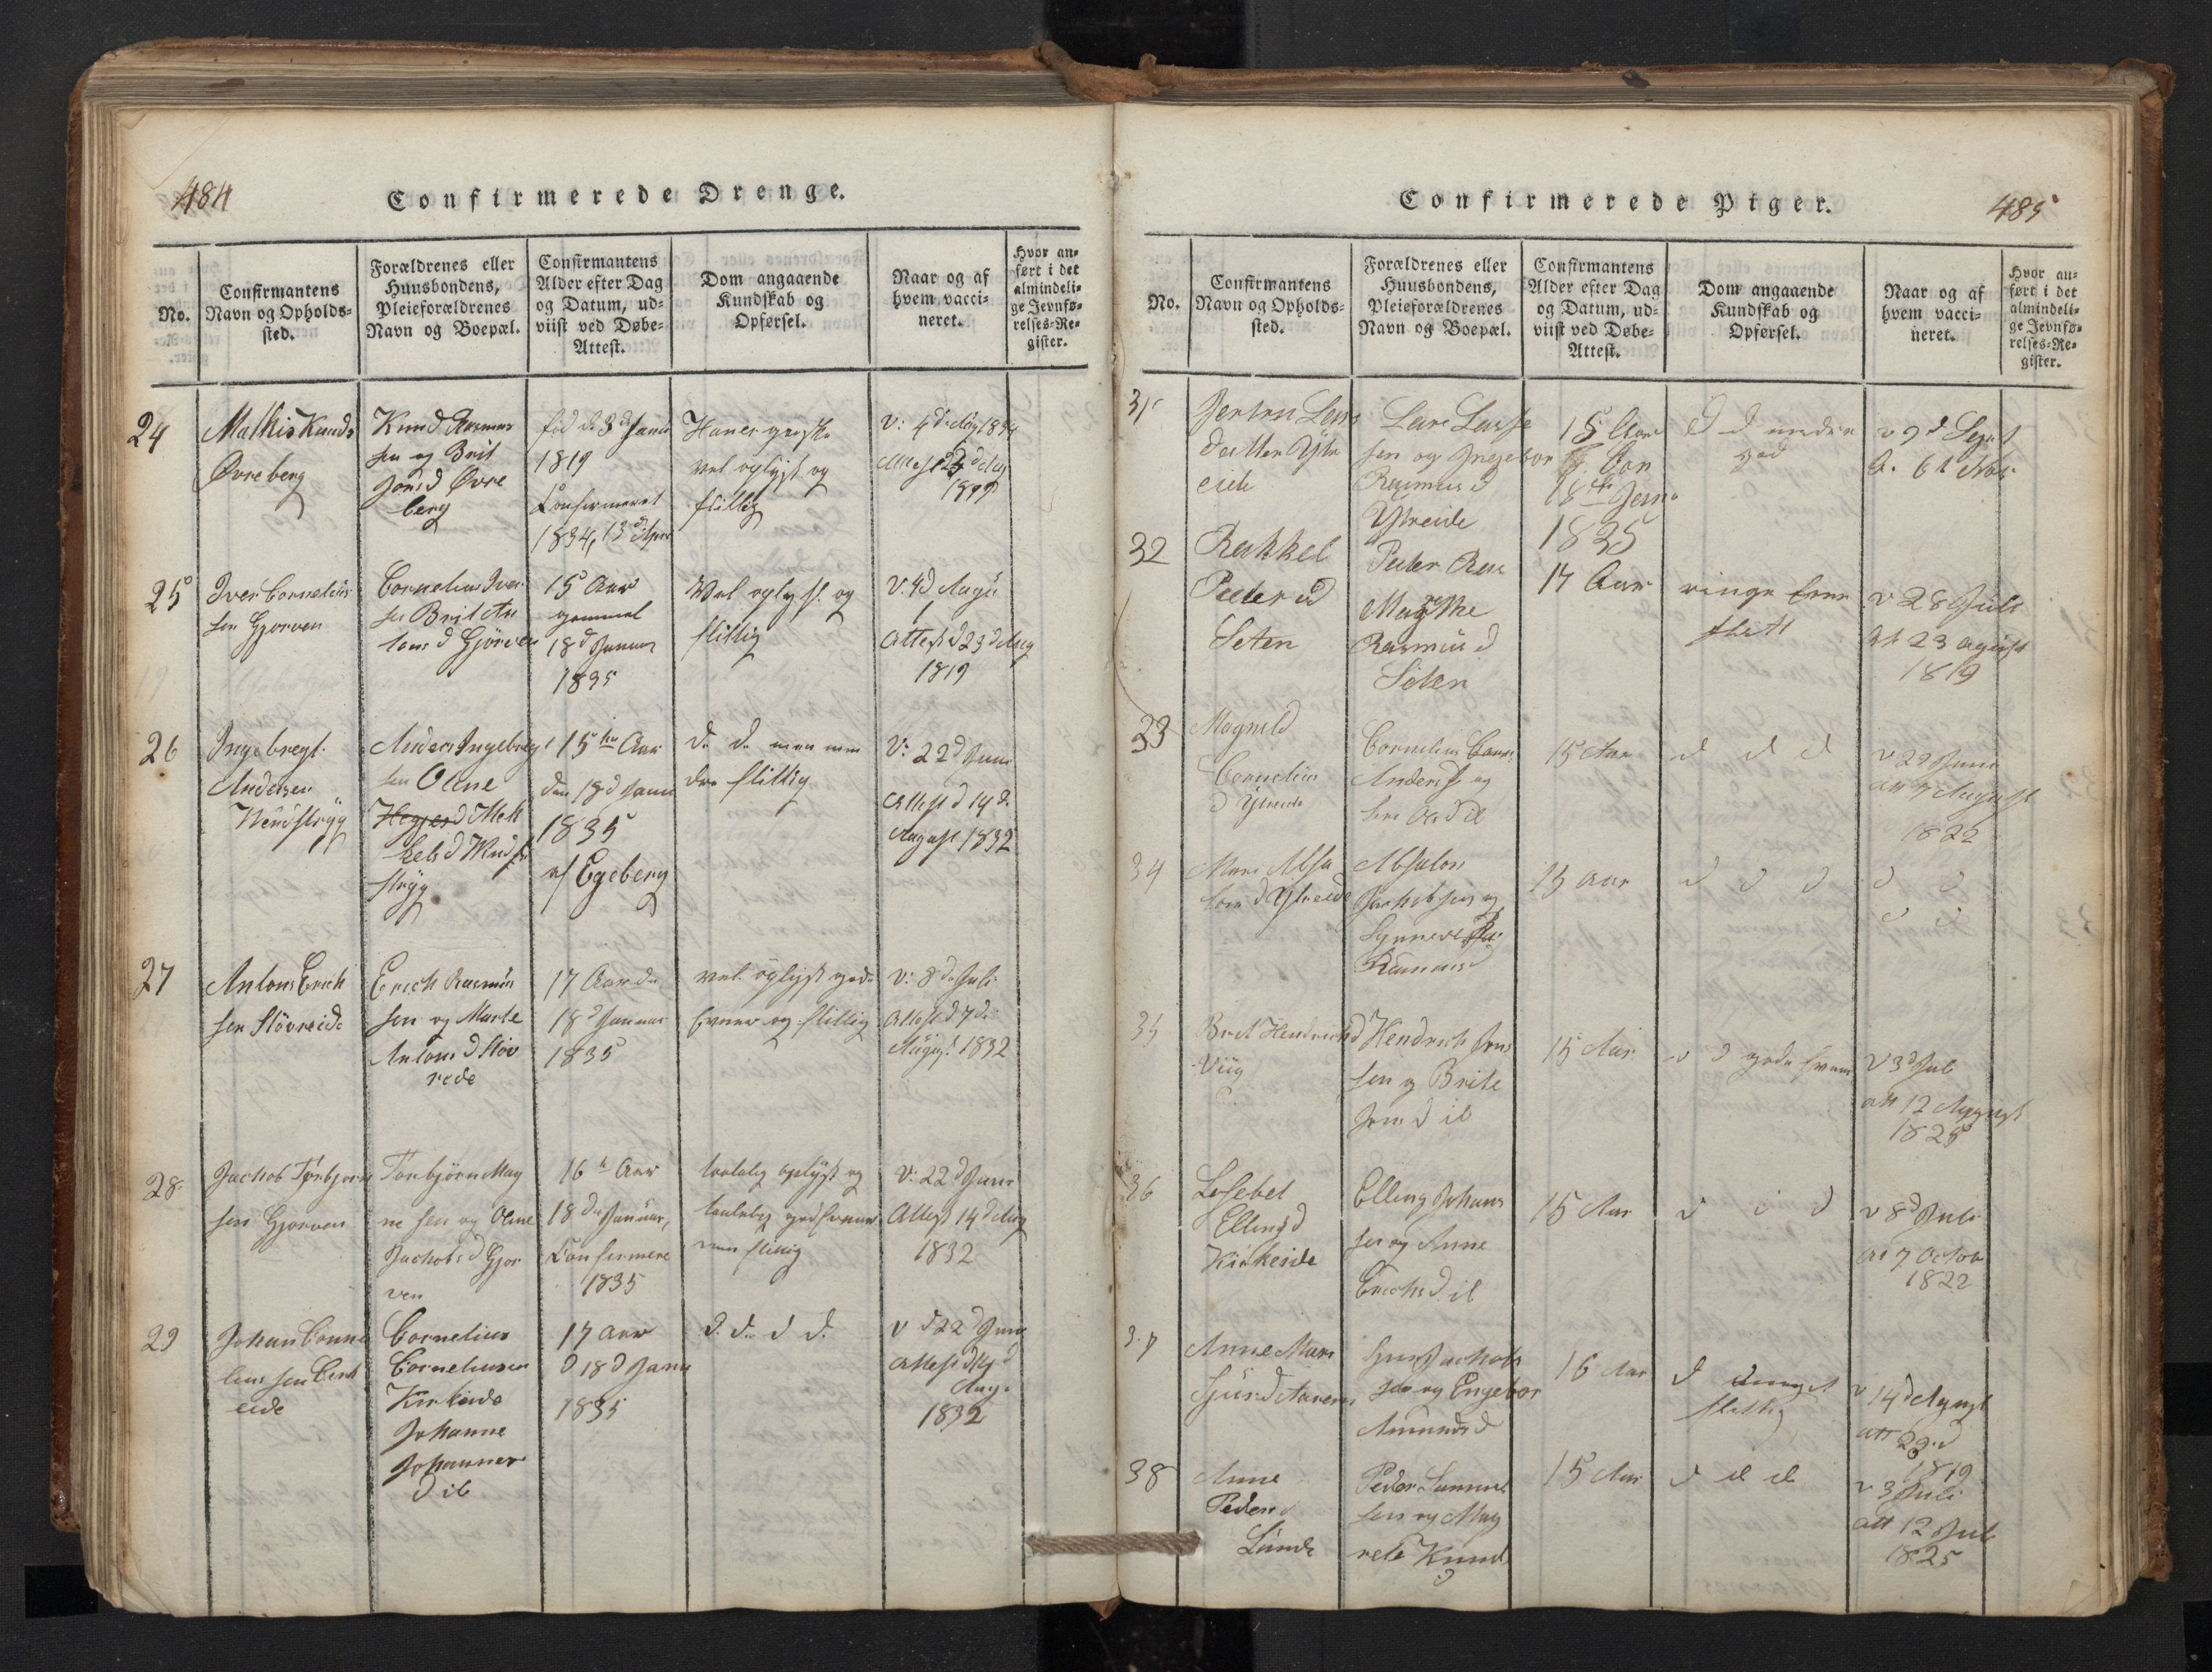 484
Confirmerede Drenge.
No.
Confirmantens
Navn og Opholds-
sted.
Forældrenes eller
Huusbondens,
Pleieforældrenes
Navn og Boepæl.
Confirmantens
Alder efter Dag
og Datum, ud-
viist ved Døbe-
Attest.
Dom angaaende
Kundskab og
Opførsel.
Naar og af
hvem vacci-
neret.
Hvor an-
ført i det
almindeli-
ge Jevnfø-
relses-Re-
gister.
24
Mathis Knuds
Øvreberg
Knud Rasmus
sen og Brit
Jonsd Øvre
berg
fød d. 3d Janu
1819
Confirmeret
1834, 13d Apr
vel oplyst og
flittig
V: 4d Aug 1834
25
Iver Cornelius
sen Gjorven
Cornelius Iver
sen Brit An
tons d Gjörven
15 Aar
gammel
18d Januar
1835
Vel oplyst og
flittig
V. 4d Augu
Attest d 23d Aug
1819
26
Ingebregt
Andersen
Anders Ingebregt
sen Oline
d Mek
kels d
stryg
15 Aar
den 18d Janu
1835
af Egeberg
d. d. men min
dre flittig
V: 22d Juni
Attest d 14d.
August 1832
27
Antons Erich
sen Störreide
Erich Rasmus
sen og Marte
Antons d Stör
rede
17 Aar d.
18d Januar
1835
vel oplyst gode
Evner og flittig
V: 8d. Juli
Attest d 7d.
August 1832
28.
Jachob Torbjorn
sen Gjorven
Torbjörn Mag
ne sen og Oline
Jachobs d Gjor
ven
16 Aar
18d. Januar,
Confirmere
1835
taalelig oplyst og
flittig
V: 22d Juni
Attest 14d Aug
1832
29
Johan Corne
lius sen Kirk
eide
Cornelius
Corneliusen
Kirkeide
Johanne
Johannes
d ib
17 Aar
d 18d Janu
1835
d. d. d d.
V d 22d Juni
Attest d 14d
Aug.
1832
Confirmerede Piger.
485
No.
Confirmantens
Navn og Opholds-
sted.
Forældrenes eller
Huusbondens,
Pleieforældrenes
Navn og Boepæl.
Confirmantens
Alder efter Dag
og Datum, ud-
viist ved Døbe-
Attest.
Dom angaaende
Kundskab og
Opførsel.
Naar og af
hvem vacci-
neret.
Hvor an-
ført i det
almindeli-
ge Jevnfø-
relses-Re-
gister.
31
Lars
datter Ystr
eide
Lars Lasse
sen og Ingebor
Rasmus d
Ytreide
15 Aar
Con
18de Janu
1835
d d
god
v 9d Sept
32
Rakkel
Peder d
Seten
Peder Ras
Marthe
Rasmus d
Seten
17 Aar
ringe Evne
slett
v 28 Juli
At 23 August
1819
33
Magnild
Cornelius
d Ytreide
Cornelius Corn.
Anders og
15 Aar
d d d
v 22 Juni
att 7 August
1822
34
Mari Absa
lons d Ytreide
Absalon
Jachobsen og
Synneve
Rasmus d
15 Aar
d d d
d d
d d
35
Brit Hendrichs d
Viig
Hendrich Jens
sen og Brite
Jons d ib
15 Aar
d d gode Evner
V 3d Juli
att 12 August
1825
36
Lisebet
Ellings d
Kirkeide
Elling Johans
sen og Anne
Erichs d. ib
15 Aar
d d d
v 8d Juli
at 7 Octobr
1822
37
Anne Mari
Sjurs d
Sjur Jachobs
sen og Engebor
Amunds d
16 Aar
d
flittig
v 14d August
att 23d
1819
38
Anne
Peders d
Lunde
Peder Samuel
sen og Mag
rete Knud
d
15 Aar
d d d
v 3 Juli
att 12 Juli
1825